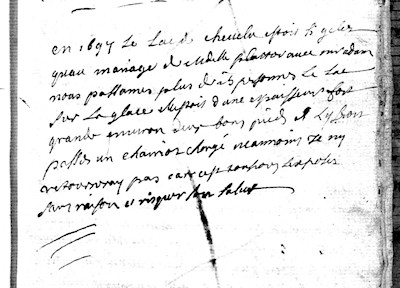 en 1697 Le Lac de chevelu estoit sy gelés
quau mariage de Mdlle plattet avec mr adam
nous passames plus de 25 personnes Le Lac
sur La glace elle estoit d'une epaisseur fort
grande environ deux bons pieds et Lyon
passés un chariot chargé neanmoins Je ny
retourneray pas car c'est tousjours s'exposer
sans raison et risquer son salut